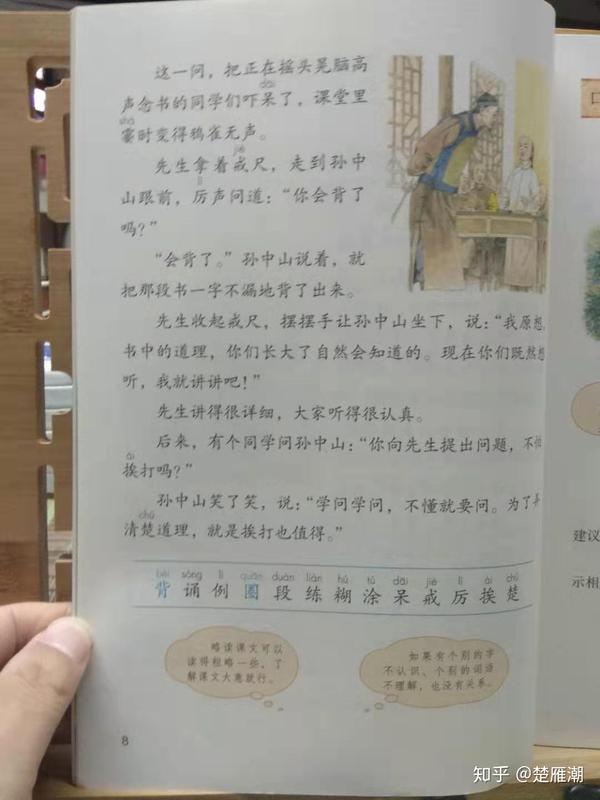 这一问，把正在摇头晃脑高
dāi
声念书的同学们吓呆了，课堂里
shà
霎时变得鸦雀无声。
jiè
先生拿着戒尺，走到孙中
lì
山跟前，厉声问道：“你会背了
吗？”
“会背了。”孙中山说着，就
把那段书一字不漏地背了出来。
先生收起戒尺，摆摆手让孙中山坐下，说：“我原想，
书中的道理，你们长大了自然会知道的。现在你们既然想
听，我就讲讲吧！”
先生讲得很详细，大家听得很认真。
后来，有个同学问孙中山：“你向先生提出问题，不怕
ái
挨打吗？”
孙中山笑了笑，说：“学问学问，不懂就要问。为了弄
chǔ
清楚道理，就是挨打也值得。”
bèi sòng lì quān duàn liàn hú tú dāi jiè lì ái chǔ
背 诵 例 圈 段 练 糊 涂 呆 戒 厉 挨 楚
略读课文可以
读得粗略一些，了
解课文大意就行。
如果有个别的字
不认识、个别的词语
不理解，也没有关系。
8
口
建议
示相
知乎 @楚雁潮